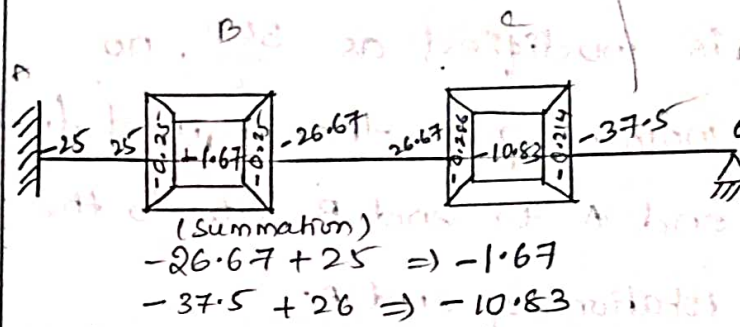 B C
A
-25 25 -0.25 -1.67 -0.25 -26.67 26.67 -0.286 -10.83 -0.214 -37.5
(Summation)
-26.67 + 25 ⇒ -1.67
-37.5 + 26 ⇒ -10.83